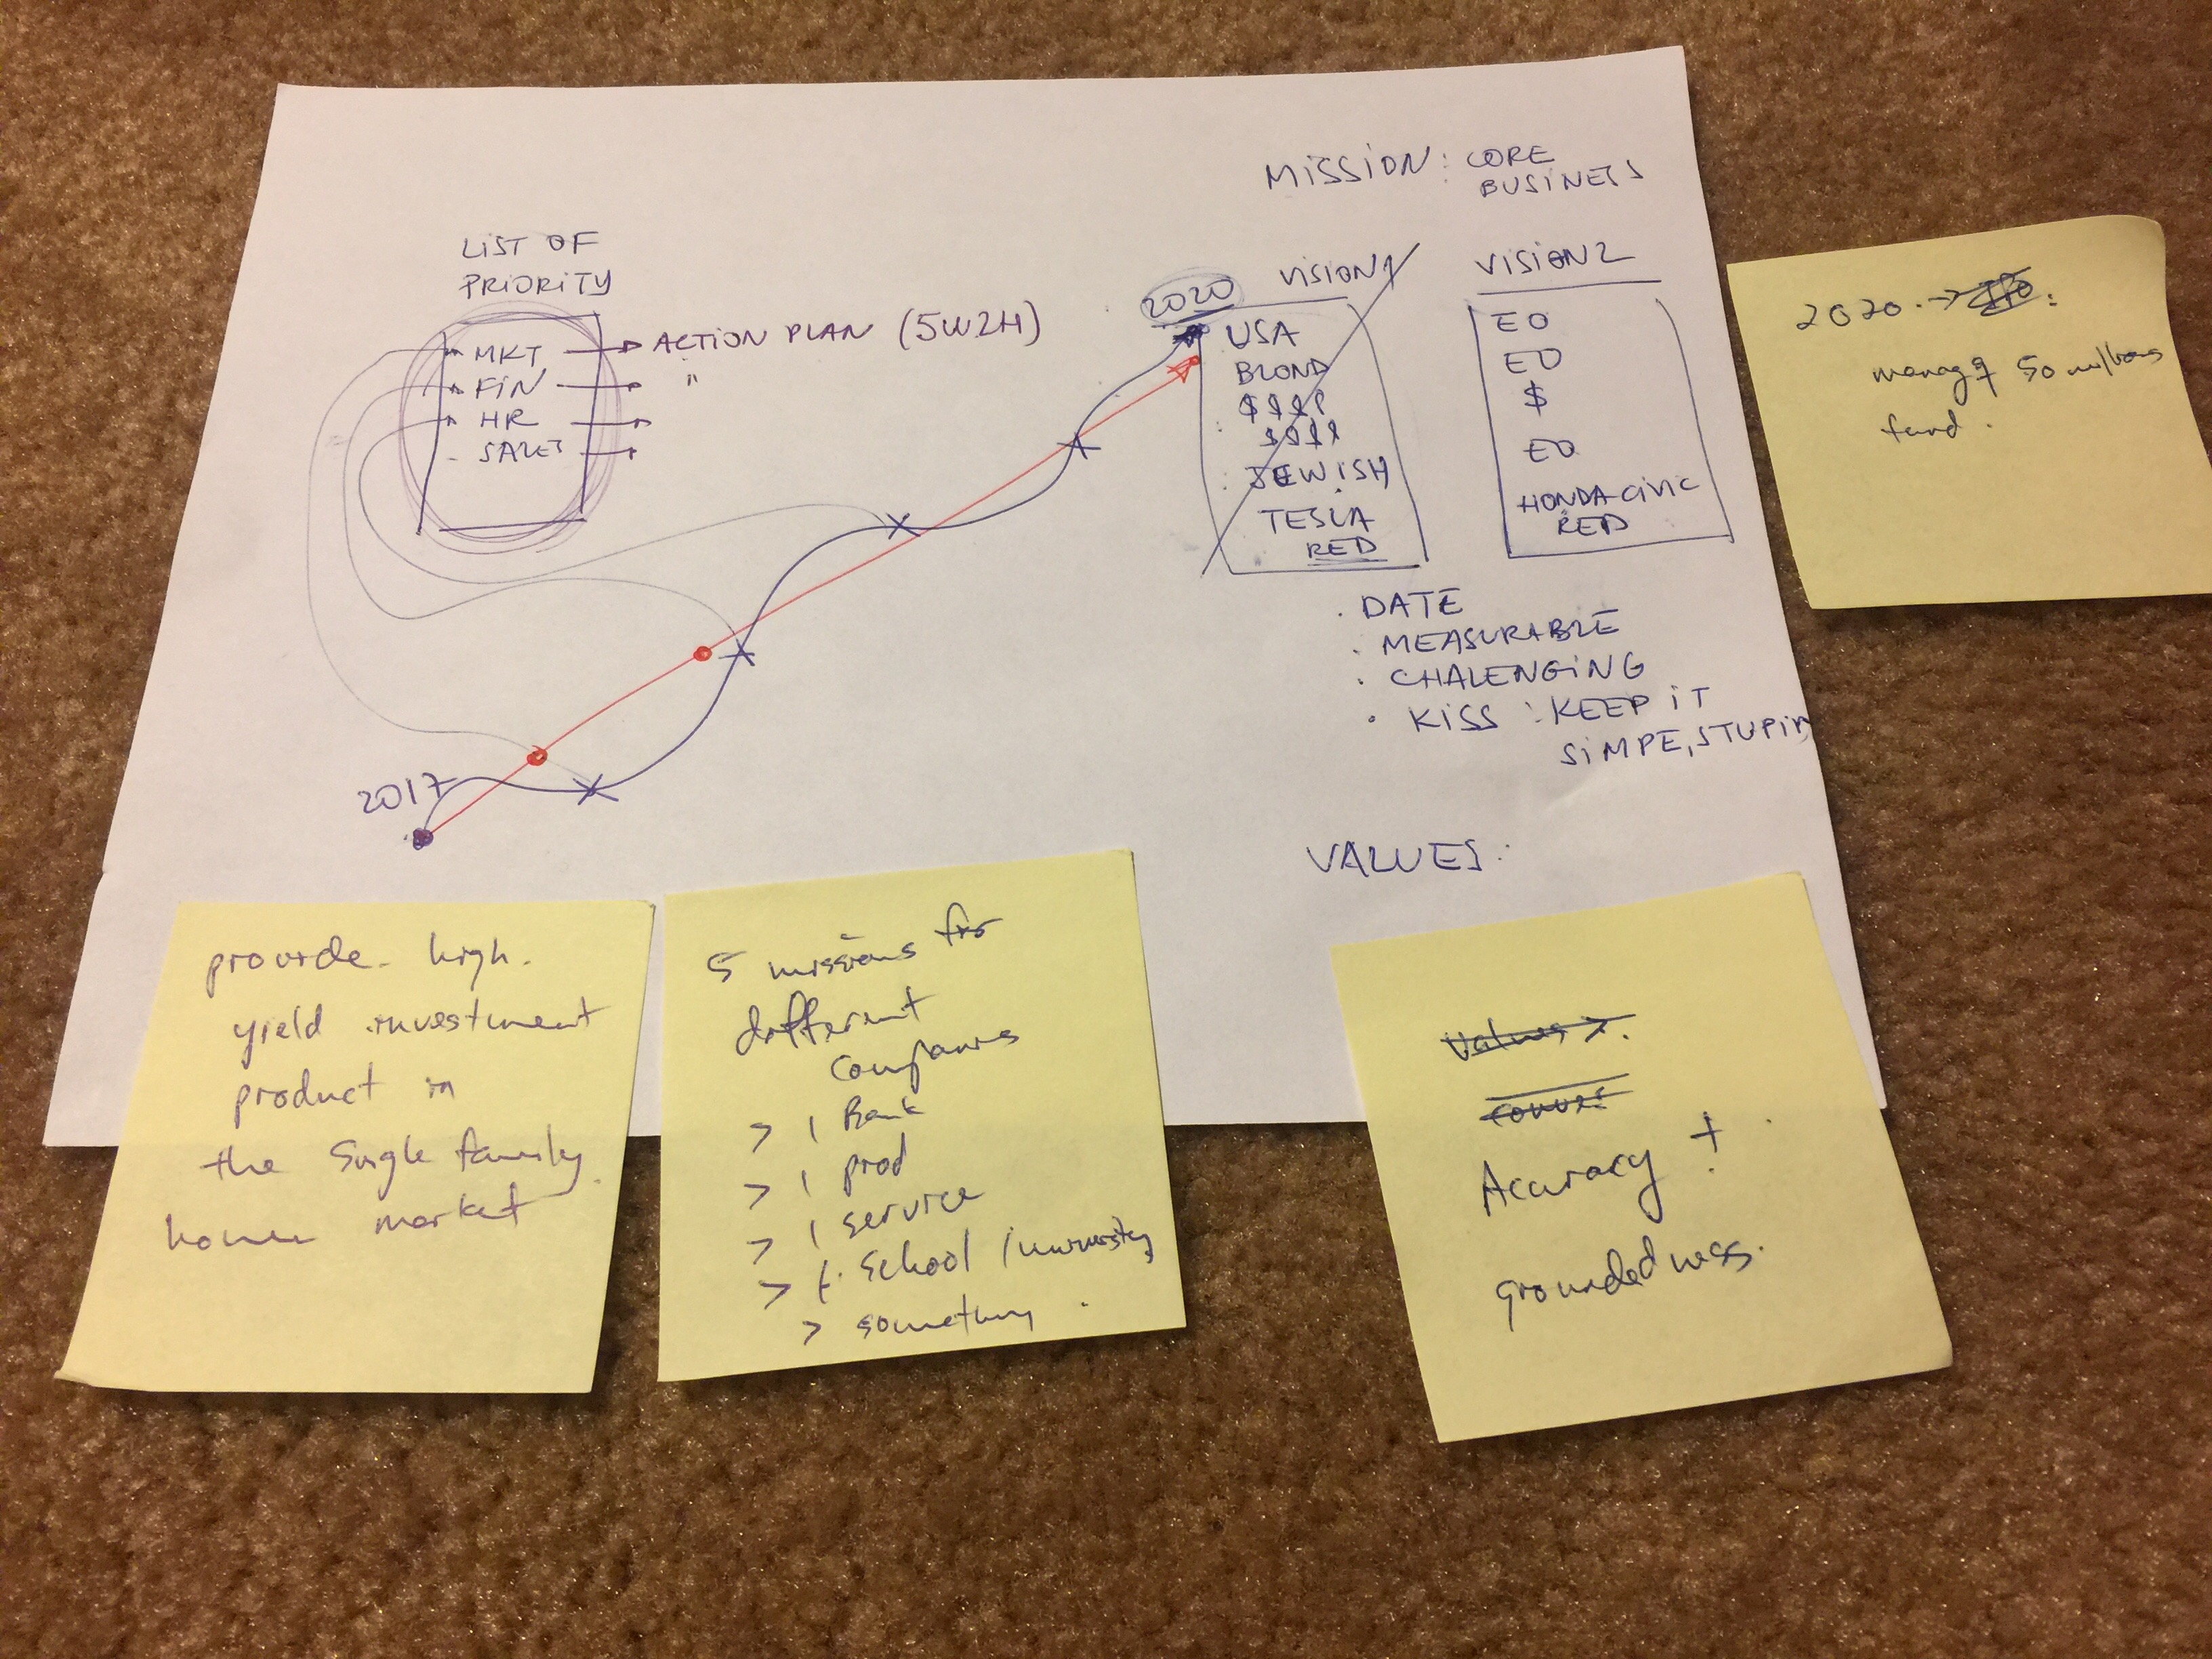 MISSION: CORE
BUSINESS
LIST OF
PRIORITY
MKT → ACTION PLAN (5W2H)
FIN → "
HR →
- SALES →
2020
VISION 1
USA
BLOND
$$$$
$$$$
JEWISH
TESLA
RED
VISION 2
EO
EO
$
EO
HONDA CIVIC
RED
. DATE
. MEASURABLE
. CHALENGING
. KISS : KEEP IT
SIMPE, STUPID
2017
VALUES:
2020 →
manag 50 millions
fund.
provide high
yield investment
product in
the Single family
home market
5 missions fro
different
companies
> 1 Bank
> 1 prod
> 1 service
> 1 school / university
> something.
Values >.
Accuracy +
groundedness.